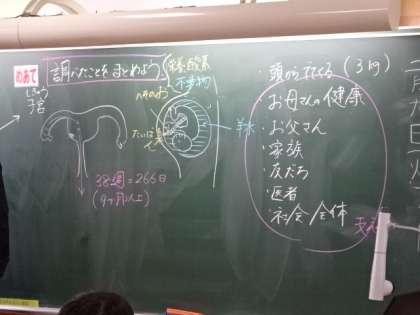 めあて
調べたことをまとめよう
しきゅう
子宮
栄養・酸素
不要物
へそのお
たいばん
羊水
38週=266日
(9ヶ月以上)
・頭から出てくる(3kg)
・お母さんの健康
・お父さん
・家族
・友だち
・医者
・社会全体
支え